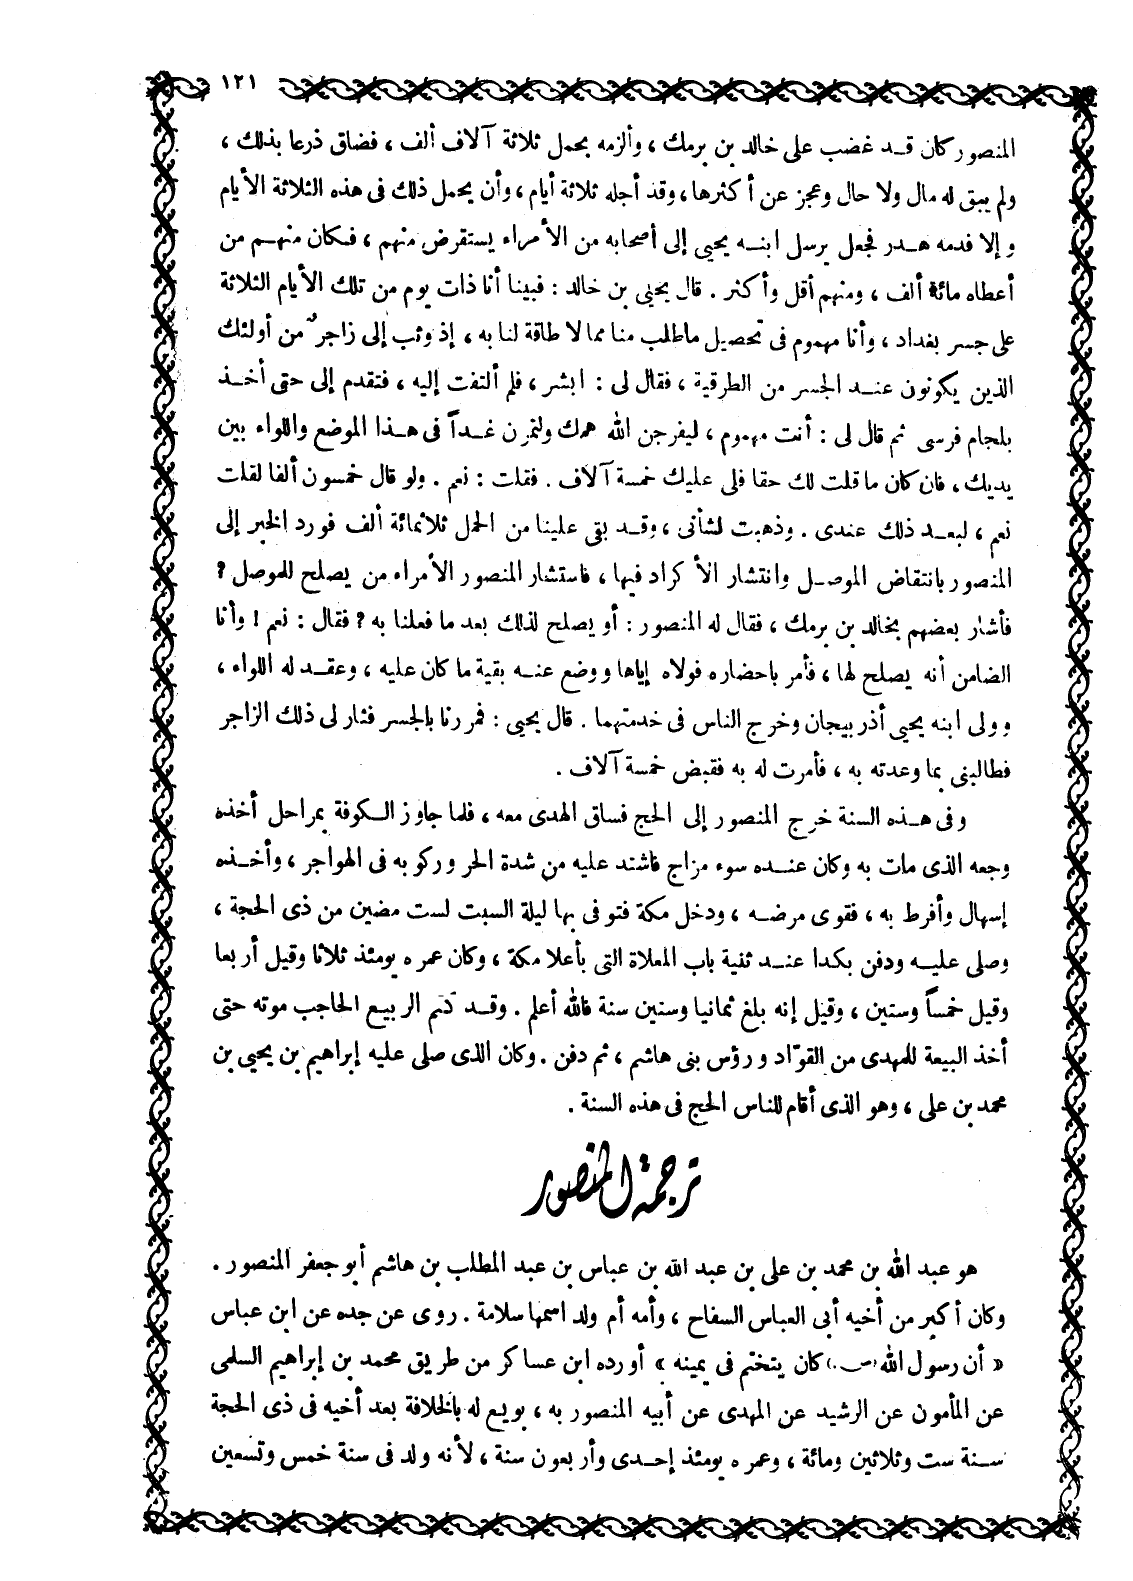 ١٢١
المنصور كان قد غضب على خالد بن برمك ، وألزمه بحمل ثلاثة آلاف ألف ، فضاق ذرعا بذلك ،
ولم يبق له مال ولا حال وعجز عن أكثرها ، وقد أجله ثلاثة أيام ، وأن يحمل ذلك فى هذه الثلاثة الأيام
وإلا فدمه هدر فجعل يرسل ابنه يحيى إلى أصحابه من الأمراء يستقرض منهم ، فكان منهم من
أعطاه مائة ألف ، ومنهم أقل وأكثر . قال يحيى بن خالد : فبينا أنا ذات يوم من تلك الأيام الثلاثة
على جسر بغداد ، وأنا مهموم فى تحصيل ماطلب منا مما لا طاقة لنا به ، إذ وثب إلى زاجر من أولئك
الذين يكونون عند الجسر من الطرقية ، فقال لى : ابشر ، فلم ألتفت إليه ، فتقدم إلى حتى أخذ
بلجام فرسى ثم قال لى : أنت مهموم ، ليفرجن الله همك ولتمرن غداً فى هذا الموضع واللواء بين
يديك ، فان كان ما قلت لك حقا فلى عليك خمسة آلاف . فقلت : نعم . ولو قال خمسون ألفا لقلت
نعم ، لبعد ذلك عندى . وذهبت لشأنى ، وقد بقى علينا من الحمل ثلاثمائة ألف فورد الخبر إلى
المنصور بانتقاض الموصل وانتشار الأكراد فيها ، فاستشار المنصور الأمراء من يصلح للموصل ؟
فأشار بعضهم بخالد بن برمك ، فقال له المنصور : أو يصلح لذلك بعد ما فعلنا به ؟ فقال : نعم ! وأنا
الضامن أنه يصلح لها ، فأمر باحضاره فولاه إياها ووضع عنه بقية ما كان عليه ، وعقد له اللواء ،
وولى ابنه يحيى أذربيجان وخرج الناس فى خدمتهما . قال يحيى : فمررنا بالجسر فثار لى ذلك الزاجر
فطالبنى بما وعدته به ، فأمرت له به فقبض خمسة آلاف .
وفى هذه السنة خرج المنصور إلى الحج فساق الهدى معه ، فلما جاوز الكوفة بمراحل أخذه
وجعه الذى مات به وكان عنده سوء مزاج فاشتد عليه من شدة الحر وركوبه فى الهواجر ، وأخذه
إسهال وأفرط به ، فقوى مرضه ، ودخل مكة فتوفى بها ليلة السبت لست مضين من ذى الحجة ،
وصلى عليه ودفن بكدا عند ثنية باب المعلاة التى بأعلا مكة ، وكان عمره يومئذ ثلاثا وقيل أربعا
وقيل خمساً وستين ، وقيل إنه بلغ ثمانيا وستين سنة فالله أعلم . وقد كتم الربيع الحاجب موته حتى
أخذ البيعة للمهدى من القوّاد ورؤس بنى هاشم ، ثم دفن . وكان الذى صلى عليه إبراهيم بن يحيى بن
محمد بن على ، وهو الذى أقام للناس الحج فى هذه السنة .
ترجمة المنصور
هو عبد الله بن محمد بن على بن عبد الله بن عباس بن عبد المطلب بن هاشم أبو جعفر المنصور .
وكان أكبر من أخيه أبى العباس السفاح ، وأمه أم ولد اسمها سلامة . روى عن جده عن ابن عباس
« أن رسول الله (ص) كان يتختم فى يمينه » أورده ابن عساكر من طريق محمد بن إبراهيم السلمى
عن المأمون عن الرشيد عن المهدى عن أبيه المنصور به ، بويع له بالخلافة بعد أخيه فى ذى الحجة
سنة ست وثلاثين ومائة ، وعمره يومئذ إحدى وأربعون سنة ، لأنه ولد فى سنة خمس وتسعين